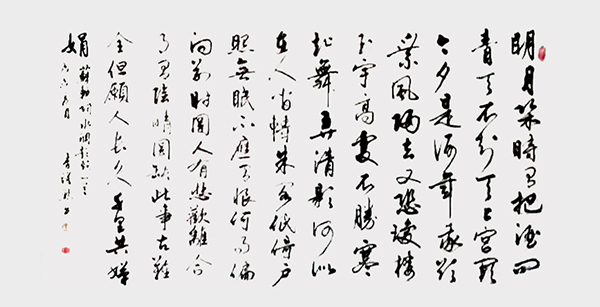 明月幾時有把酒問
青天不知天上宮闕
今夕是何年我欲
乘風歸去又恐瓊樓
玉宇高處不勝寒
起舞弄清影何似
在人間轉朱閣低綺戶
照無眠不應有恨何事偏
向别時圓人有悲歡離合
月有陰晴圓缺此事古難
全但願人長久千里共嬋
娟 蘇軾詞水調歌頭一首